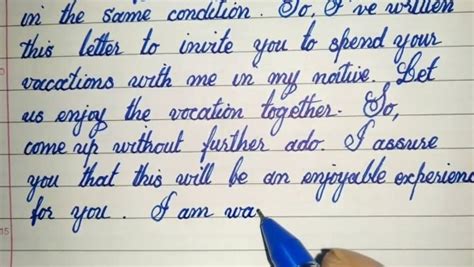 in the same condition. So, I've written
this letter to invite you to spend your
vacations with me in my native. Let
us enjoy the vocation together. So,
come up without further ado. I assure
you that this will be an enjoyable experienc
for you. I am wa